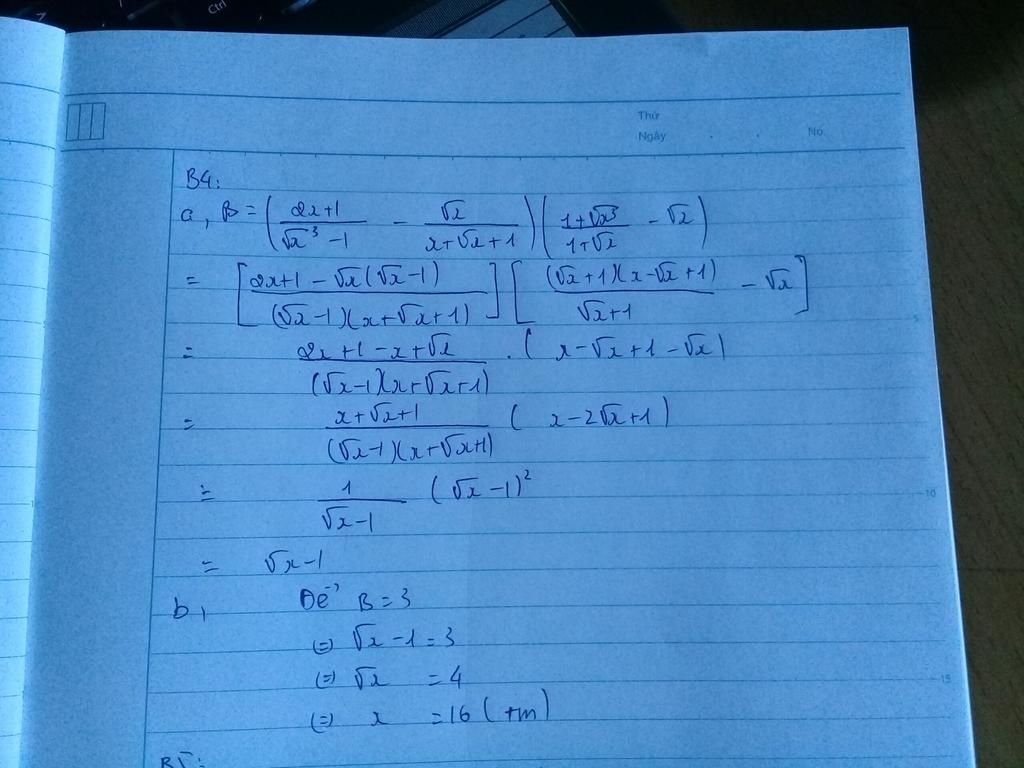 Ctrl
Thứ
Ngày . . No
B4:
a, B = ( (2x+1)/(√x³ − 1) − √x/(x+√x+1) ) ( (1+√x³)/(1+√x) − √x )
= [ (2x+1 − √x(√x−1))/((√x−1)(x+√x+1)) ] [ ((√x+1)(x−√x+1))/(√x+1) − √x ]
= (2x+1−x+√x)/((√x−1)(x+√x+1)) . ( x−√x+1−√x )
= (x+√x+1)/((√x−1)(x+√x+1)) ( x−2√x+1 )
= 1/(√x−1) (√x−1)²
= √x−1
b, Để B=3
(=) √x−1=3
(=) √x =4
(=) x =16 (tm)
B5:
5
10
15